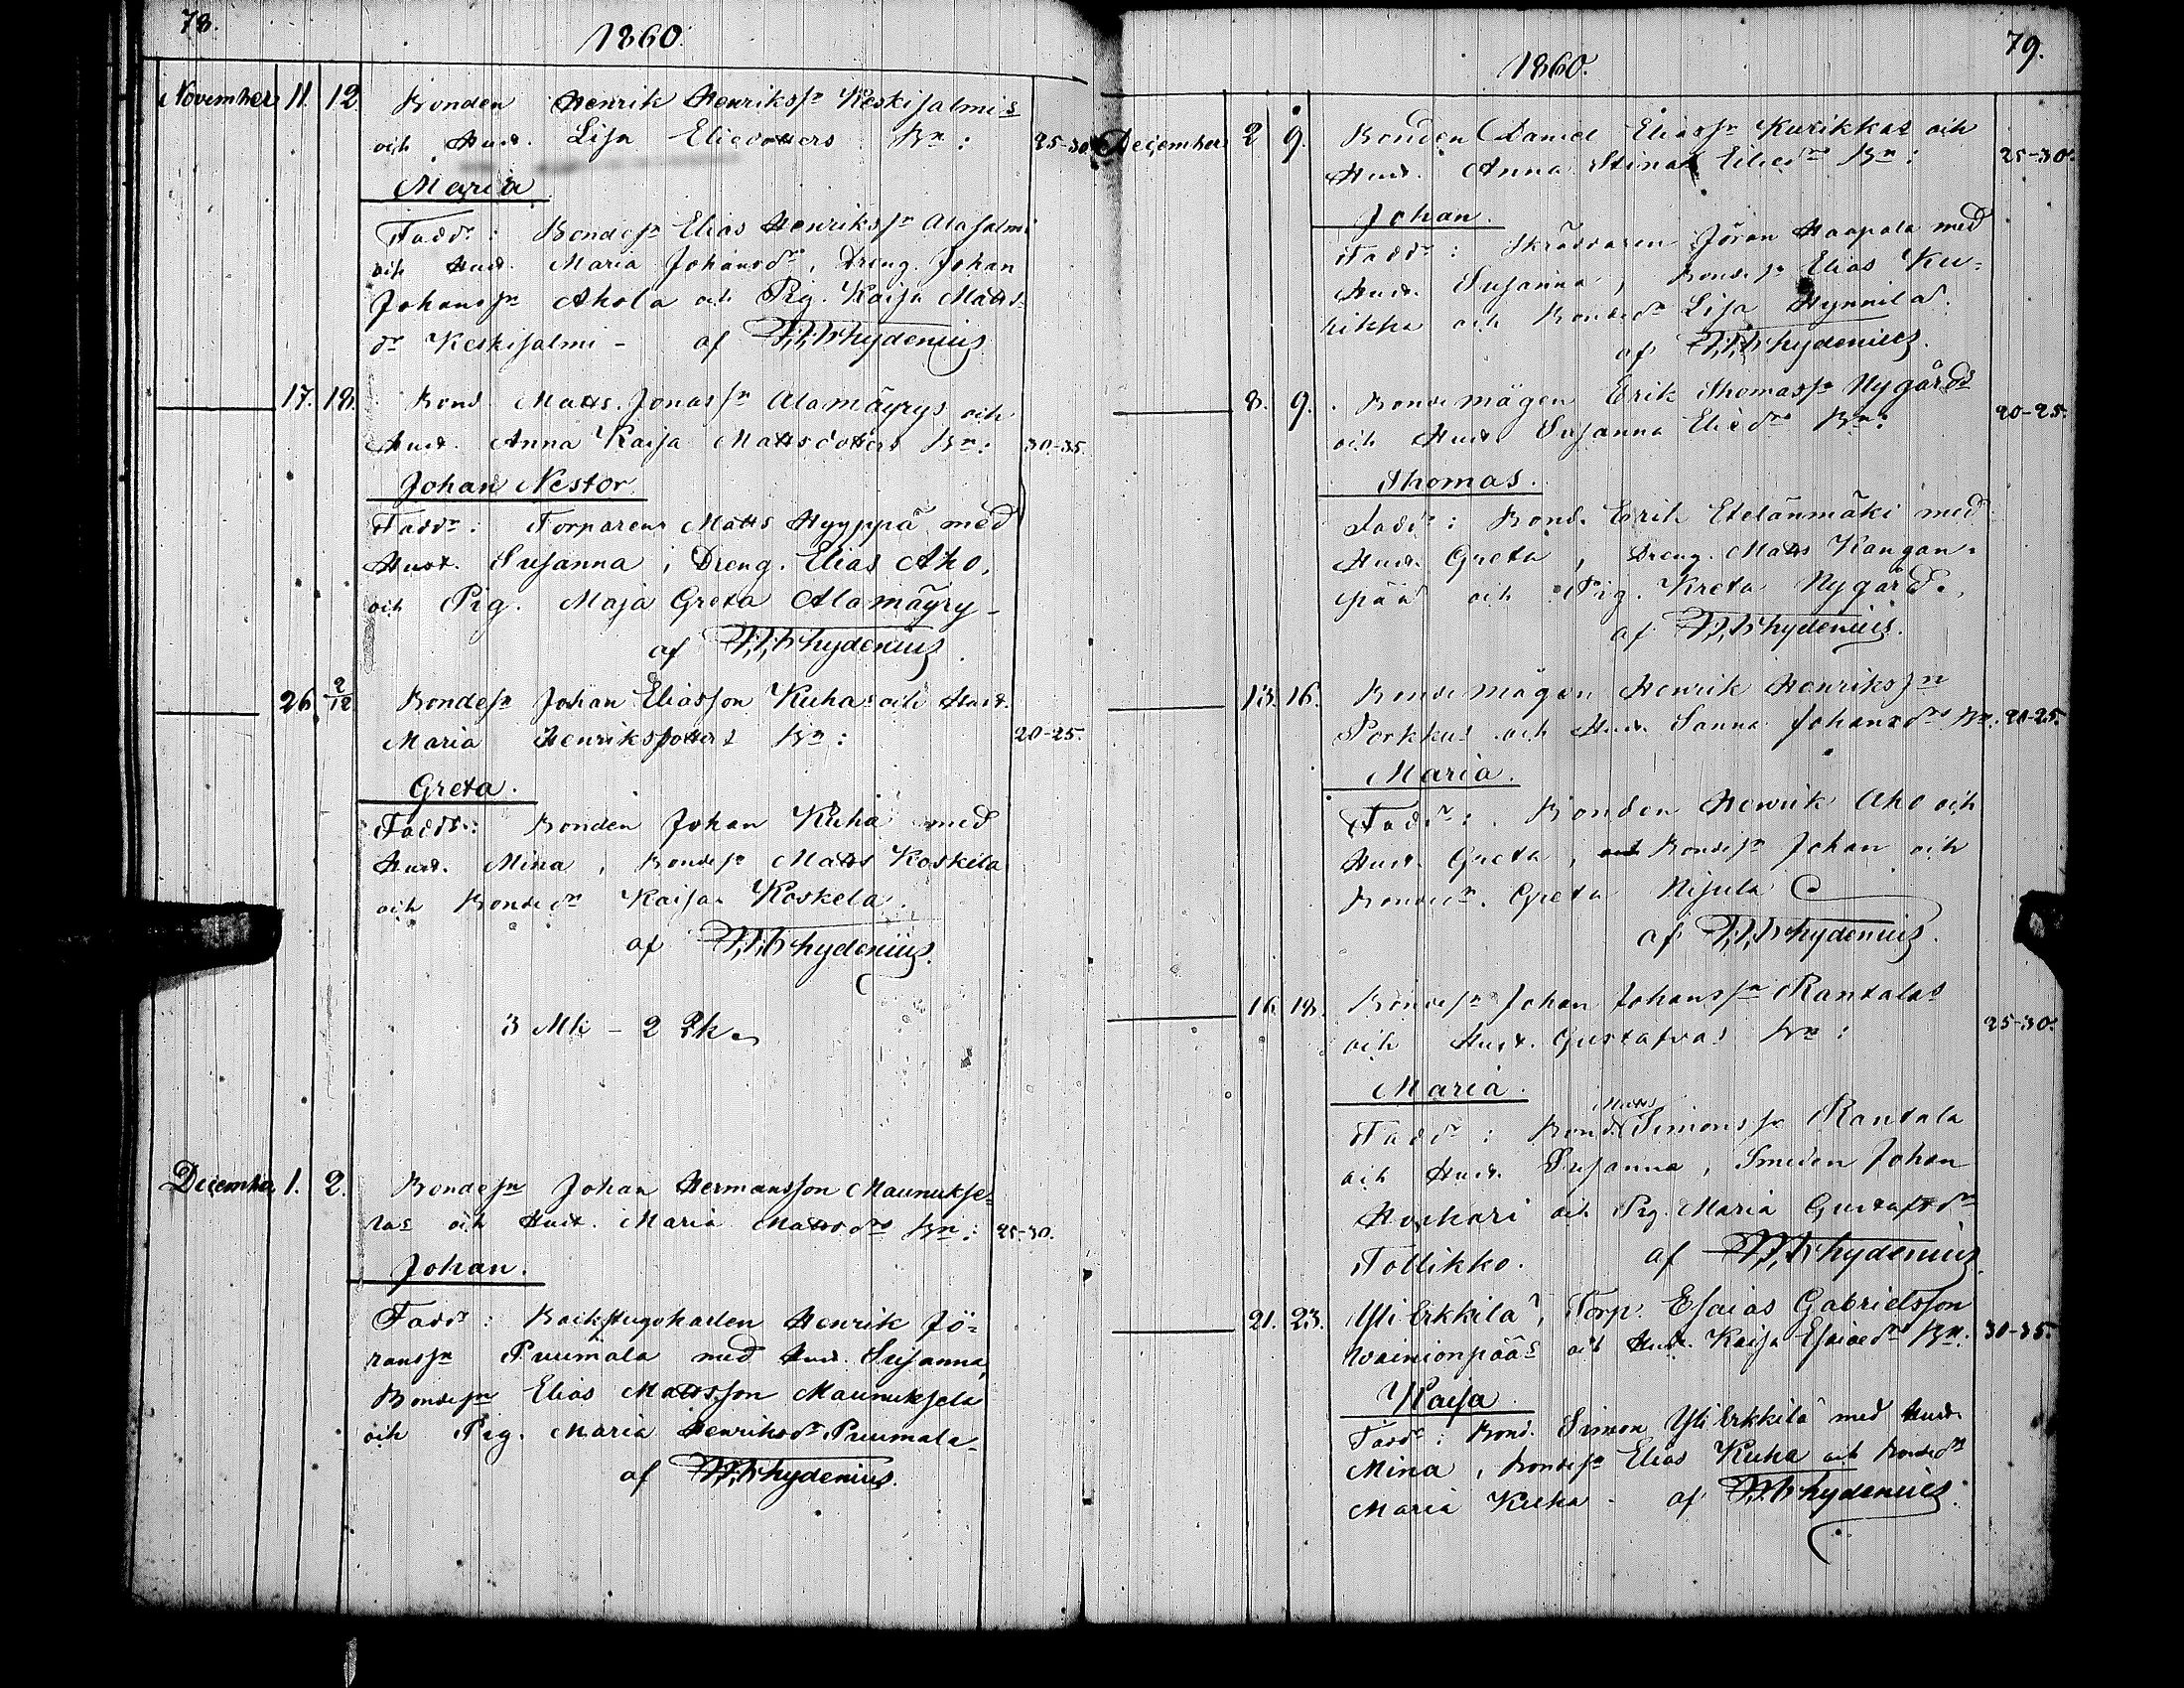 78.
1860.
November 11. 12. Bonden Henrik Henrikssn Keskisalmis
och Hust. Lisa Eliedotters Bn: 25-30
Maria
Faddr: Bondesn Elias Henrikssn Alasalmi
och Hust. Maria Johansdr, Dreng. Johan
Johanssn Ahola och Pig. Kaisa Matts-
dr Keskisalmi - af hydenius
17. 18. Bond. Matts Jonassn Alamäyrys och
Hust. Anna Kaisa Mattsdotters Bn: 30-35.
Johan Nestor.
Faddr: Torparen Matts Hyyppä med
Hust. Susanna, Dreng. Elias Aho,
och Pig. Maja Greta Alamäyry-
af hydenius
26 2/12 Bondesn Johan Eliasson Kuhas och Hust.
Maria Henriksdotters Bn: 20-25.
Greta.
Faddr: Bonden Johan Kuha med
Hust. Mina, Bondesn Matts Koskela
och Bondedr Kaisa Koskela.
af hydenius.
3 Mk - 2 Qk
December 1. 2. Bondesn Johan Hermansson Maunukse-
las och Hust. Maria Mattsdrs Bn: 25-30.
Johan.
Faddr: Backstuguharlen Henrik Jö-
ranssn Puumala med Hust. Susanna,
Bondesn Elias Mattsson Maunuksela
och Pig. Maria Henriksdr Puumala-
af hydenius.
79.
1860.
December 2 9. Bonden Daniel Eliassn Kurikkas och
Hust. Anna Stinas Eliedrs Bn: 25-30.
Johan.
Faddr: Skräddaren Jöran Haapala med
Hust. Susanna, Bondesn Elias Ku-
rikka och Bondedr Lisa Hynnilä.
af hydenius.
8. 9. Bondemågen Erik Thomassn Nygårds
och Hust. Susanna Eliedrs Bn: 20-25.
Thomas.
Faddr: Bond. Erik Etelänmäki med
Hust. Greta, Dreng. Matts Kangan-
pää och Pig. Kreta Nygård.
af hydenius.
13. 16. Bondemågen Henrik Henrikssn
Porkkus och Hust. Sanna Johansdrs Bn. 20-25.
Maria.
Faddr: Bonden Henrik Aho och
Hust. Greta, Bondesn Johan och
Bondedr. Greta Nisula
af hydenius.
16. 18. Bondesn Johan Johanssn Rantalas
och Hust. Gustafvas Bn: 25-30.
Maria.
Faddr: Bond. Matts Simonssn Rantala
och Hust. Susanna, Smeden Johan
och Pig. Maria Gustafsdr
Tollikko. af hydenius.
21. 23. Yli Erkkilä, Torp. Esaias Gabrielsson
Wainionpääs och Hust. Kaisa Esaiedrs Bn. 30-35.
Kaisa
Faddr: Bond. Simon Yli Erkkilä med Hust.
Mina, Bondesn Elias Kuha och Bondedr
Maria Kuha - af hydenius.